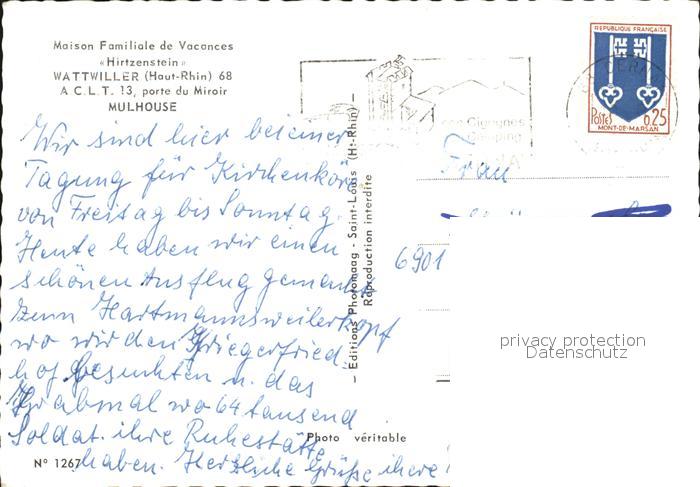 Maison Familiale de Vacances
«Hirtzenstein»
WATTWILLER (Haut-Rhin) 68
A C.L.T. 13, porte du Miroir
MULHOUSE
REPUBLIQUE FRANÇAISE
Postes 0,25
MONT-DE-MARSAN
ses Cigognes
Camping
Wir sind hier bei einer
Tagung für Kirchenköre
von Freitag bis Sonntag.
Heute haben wir einen
schönen Ausflug gemacht
zum Hartmannsweilerkopf
wo wir den Kriegerfried-
hof besuchten u. das
Grabmal wo 64 tausend
Soldat. ihre Ruhestätte
haben. Herzliche Grüße ihere
Frau
6901
— Editions Photomaag - Saint-Louis (Ht-Rhin) —
Reproduction interdite
Photo véritable
N° 1267
privacy protection
Datenschutz